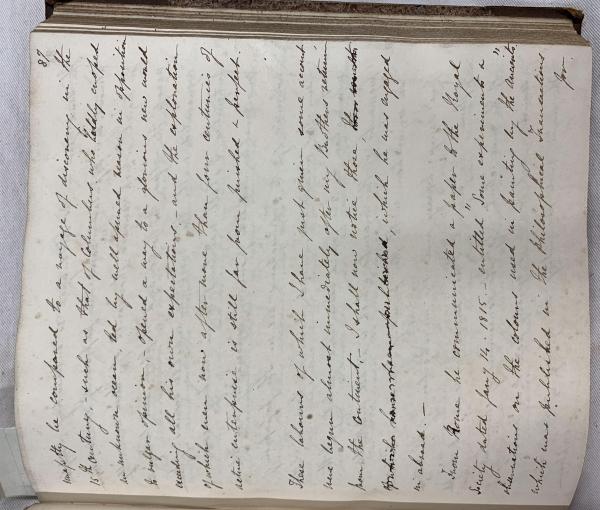 87
be compared to a voyage of discovery in the
15th Century, such as that of Columbus who boldly
an unknown ocean led by well opined reason in opposition
to vulgar opinion, - opened a way to a glorious new world
exceeding all his own expectations, - and the exploration
of which even now after more than four centuries of
active enterprise is still far from finished & perfect.
These labours of which I have just given some account
were begun almost immediately after my Brothers return
from the Continent. - I shall now notice those
in which he was engaged
in abroad. -
From Rome he communicated a paper to the Royal
Society dated Jany 14. 1815. - entitled "Some experiments &
observations on the colours used in painting by the Ancients"
which was published in the Philosophical Transactions
for